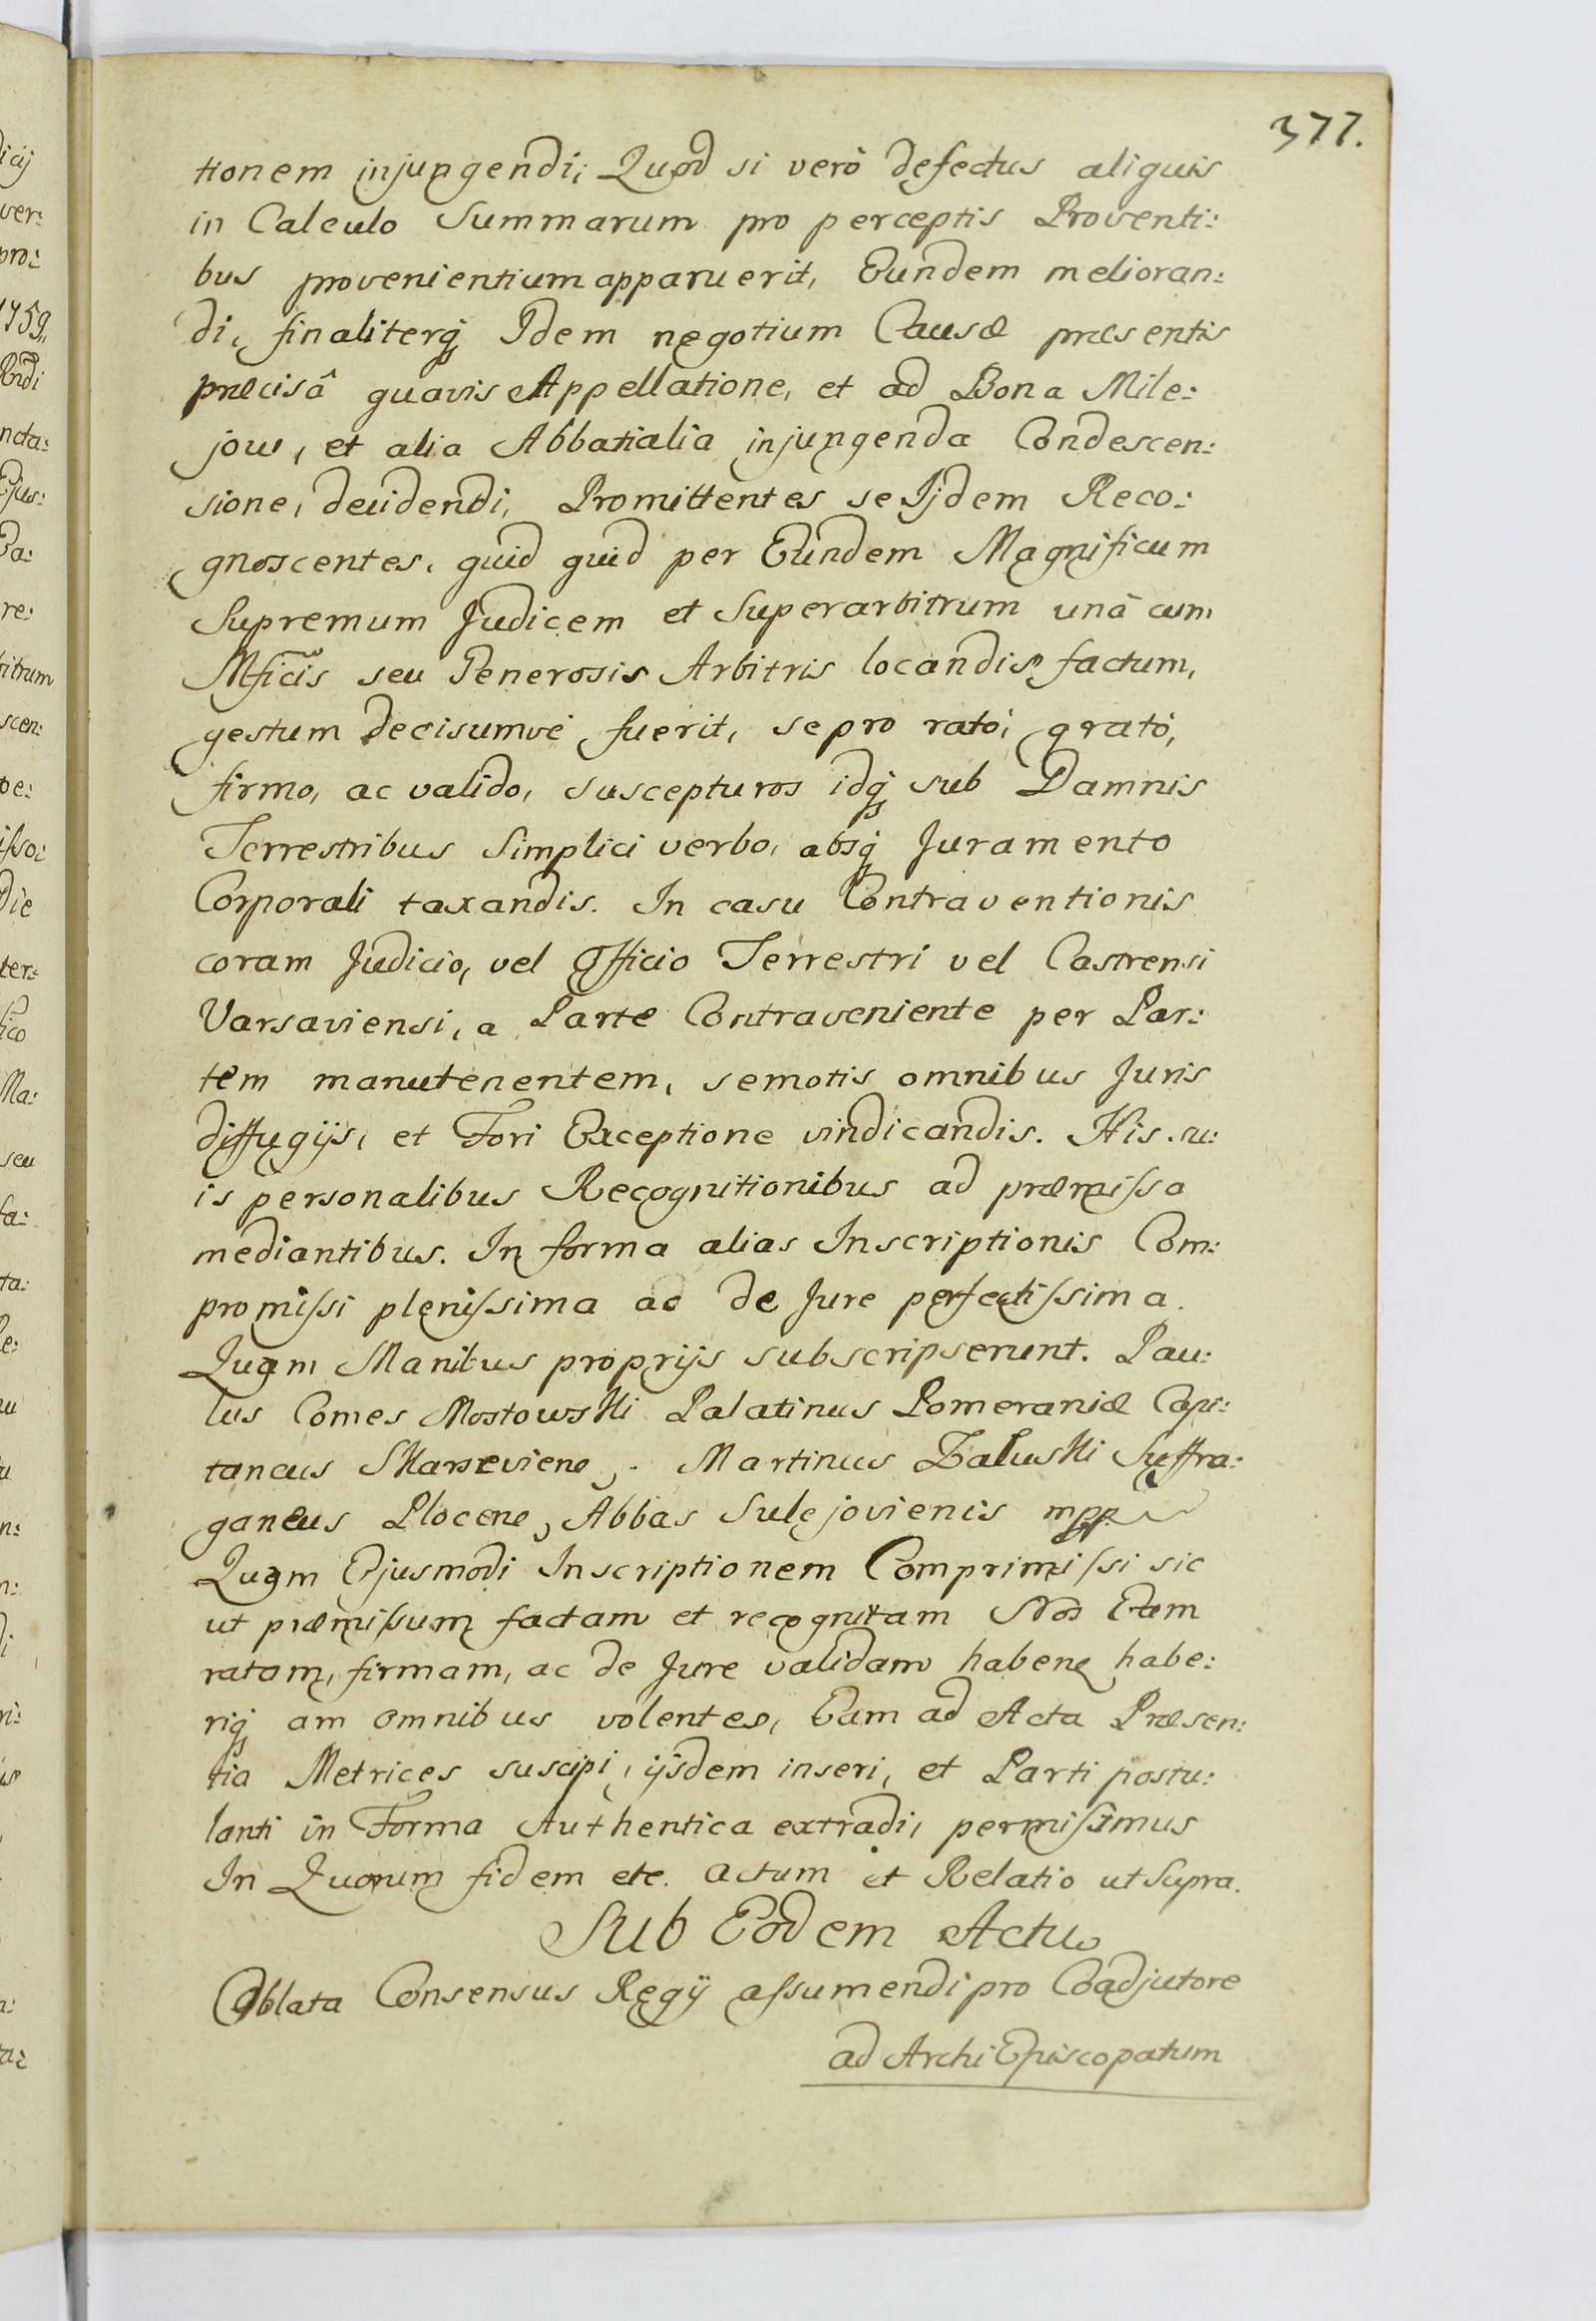 377.
tionem injungendi; Quod si verò defectus aliquis
in Calculo Summarum pro perceptis Proventi:
bus provenientium apparuerit, Eundem melioran:
di, finaliterq́ꝫ Idem negotium Causæ præsentis
præcisâ quavis Appellatione, et ad Bona Mile:
jow, et alia Abbatialia injungenda Condescen:
sione, decidendi, Promittentes se Ijdem Reco:
gnoscentes, quid quid per Eundem Magnificum
Supremum Judicem et Superarbitrum unâ cum
Mficis seu Generosis Arbitris locandis factum,
gestum decisumvè fuerit, se pro ratò, gratò,
firmo, ac valido, suscepturos idq́ꝫ sub Damnis
Terrestribus Simplici verbo, absq́ꝫ Juramento
Corporali taxandis. In casu Contraventionis
coram Judicio, vel Officio Terrestri vel Castrensi
Varsaviensi, a Parte Contraveniente per Par:
tem manutenentem, semotis omnibus Juris
diffugijs, et Fori Exceptione vindicandis. His su:
is personalibus Recognitionibus ad præmissa
mediantibus. In forma alias Inscriptionis Com:
promissi plenissima ac de Jure perfectissima.
Quam Manibus proprijs subscripserunt. Pau:
lus Comes Mostowski Palatinus Pomeraniæ Capi:
taneus . Martinus Załuski Suffra:
ganeus Plocene, Abbas Sulejovienis mpp
Quam Ejusmodi Inscriptionem Comprimissi sic
ut præmissum factam et recognitam Nos Eam
ratam, firmam, ac de Jure validam habene habe:
riq́ꝫ am omnibus volentes, Eam ad Acta Præsen:
tia Metrices suscipi, ijsdem inseri, et Parti postu:
lanti in Forma Authentica extradi, permisimus
In Quorum fidem etc. Actum et Relatio ut Supra.
Sub Eodem Actu
Oblata Consensus Regij assumendi pro Coadjutore
ad Archi Episcopatum